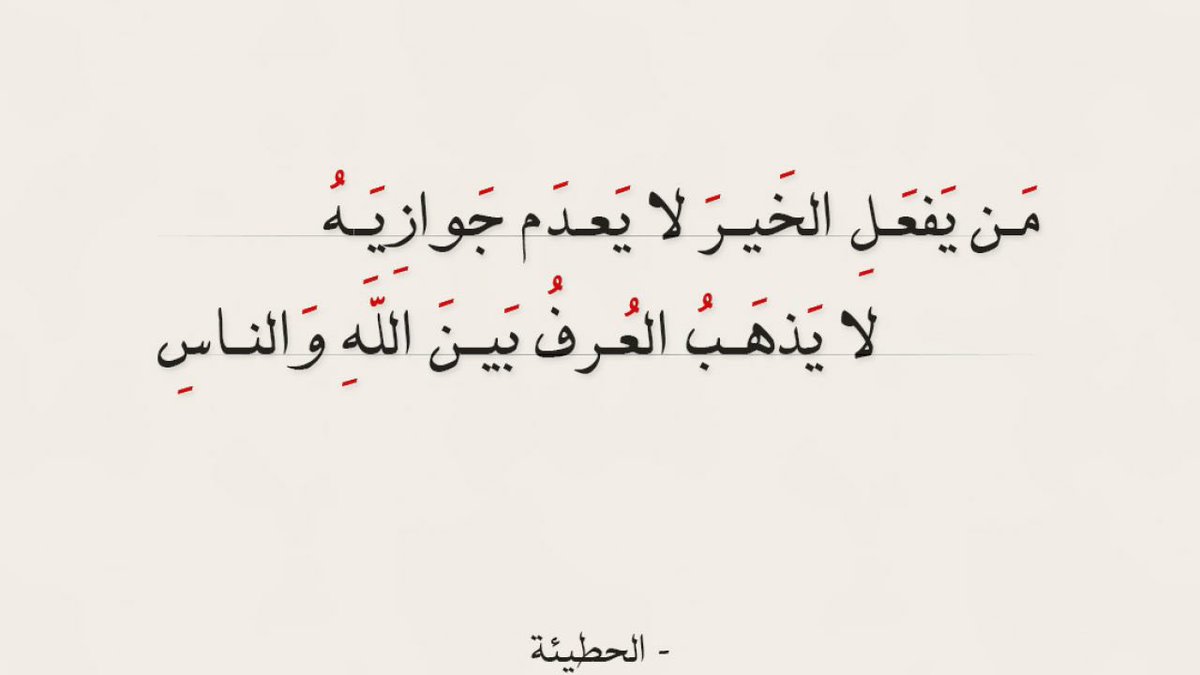 مَن يَفعَلِ الخَيرَ لا يَعدَم جَوازِيَهُ
لا يَذهَبُ العُرفُ بَينَ اللَّهِ وَالناسِ
- الحطيئة